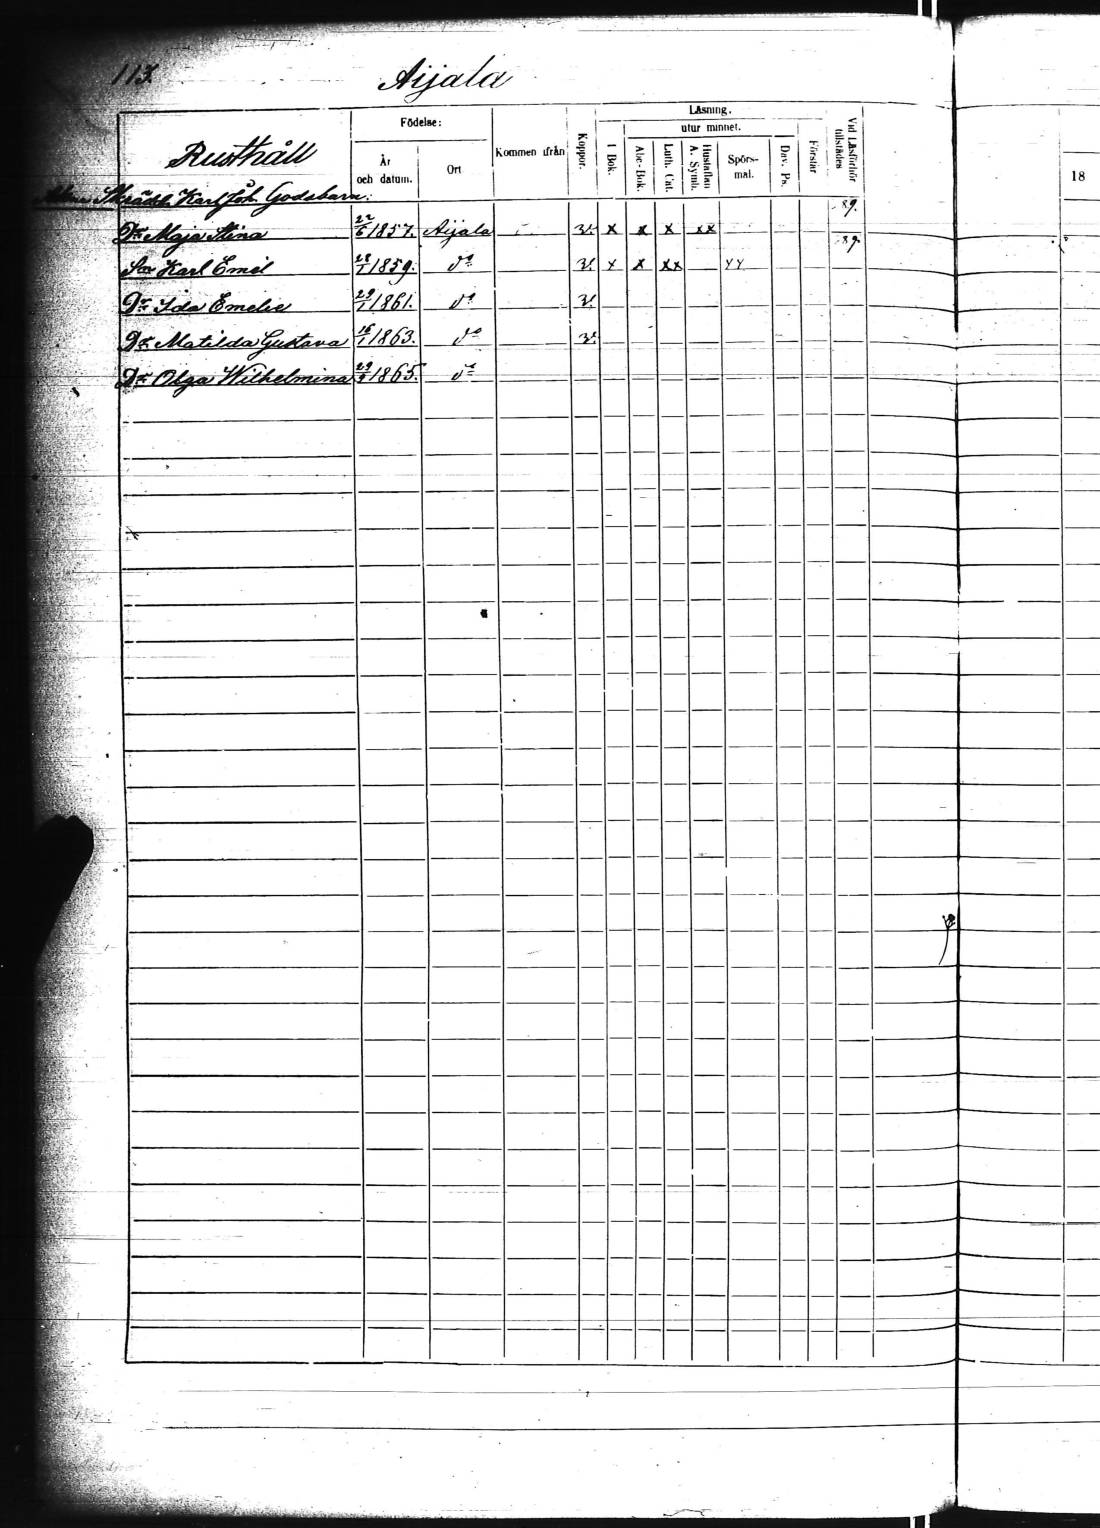 113.
Aijala
Rusthåll
Födelse:
År och datum.
Ort
Kommen ifrån
Koppor.
Läsning.
I Bok.
utur minnet.
Abc-Bok.
Luth. Cat.
Hustaflan A. Symb.
Spörs-mal.
Dav. Ps.
Förstår
Vid Läsförhör tillstädes
18
Karl Joh. Godsbarn:
Dr Maja Stina 22/6 1857. Aijala v. x x x xx 89.
Son Karl Emil 28/1 1859. do v. x x xx xx 89.
Dr Ida Emelie 29/1 1861. do v.
Dr Matilda Gustava 16/1 1863. do v.
Dr Olga Wilhelmina 29/9 1865. do